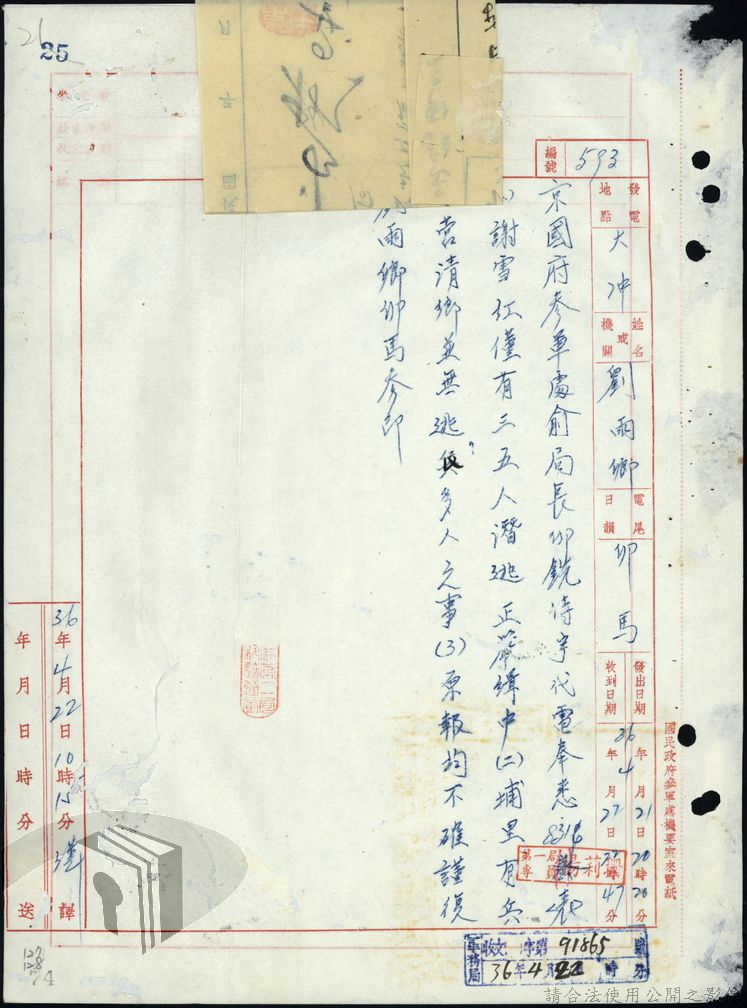 25
編號 593
發電地點 大冲
姓名或機關 劉雨卿
電尾日韻 卯馬
發出日期 36年4月21日20時20分
收到日期 年月22日22時47分
國民政府參軍處機要室來電紙
京國府參軍處俞局長卯銑侍宇代電奉悉
謝雪紅僅有三五人潛逃正嚴緝中(二)埔里有兵
營清鄉並無逃兵多人之事(3)原報均不確謹復
雨鄉卯馬參印
第一局專員
36年4月22日10時15分 譯
年月日時分送
軍務局 收文 字第 91865 號
36年4月22 時
請合法使用公開之影像